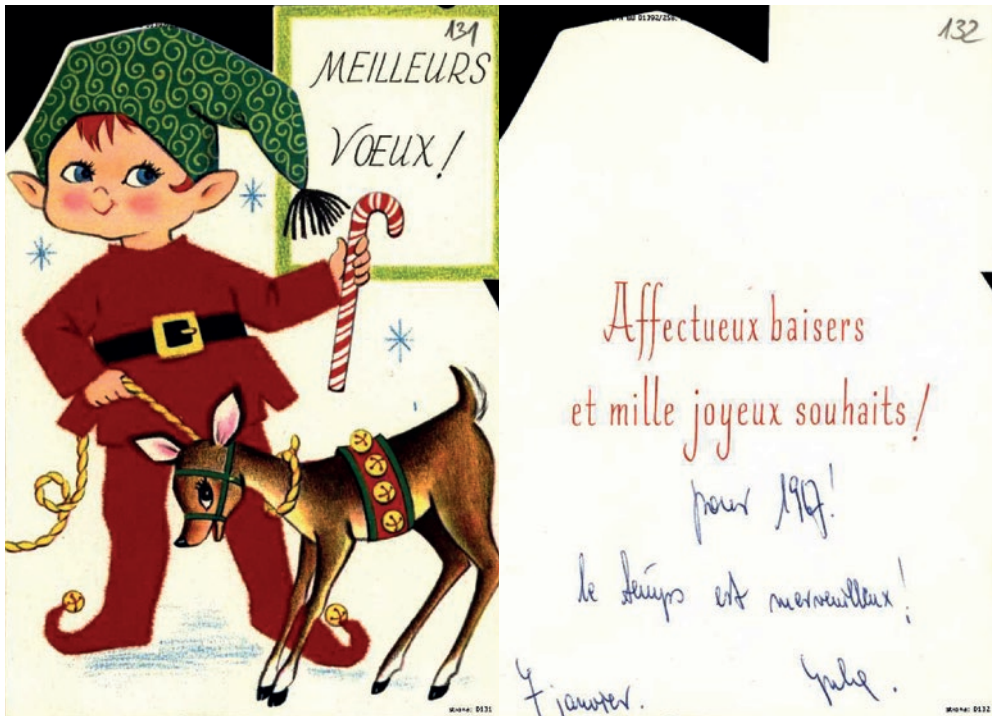 131
MEILLEURS
VOEUX!
strona: 0131
BU 01392/258
132
Affectueux baisers
et mille joyeux souhaits!
pour 1967!
le temps est merveilleux!
7 janvier.
strona: 0132